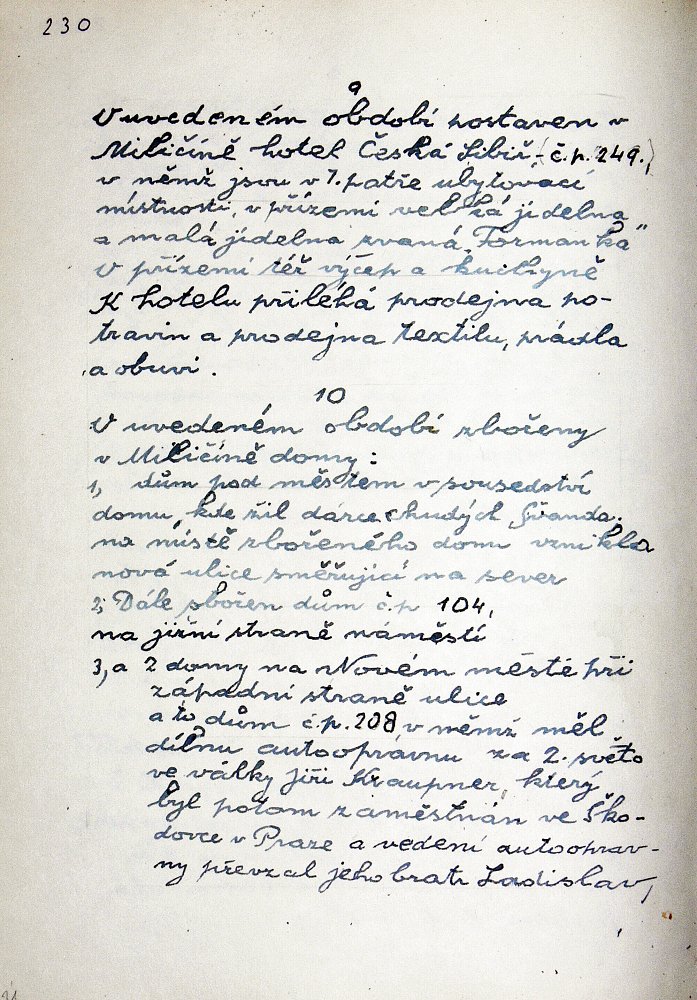 230
9
V uvedeném období postaven v
Miličíně hotel Česká Sibiř, (č.p. 249.,)
v němž jsou v 1. patře ubytovací
místnosti, v přízemí velká jídelna
a malá jídelna zvaná „Formanka"
V přízemí též výčep a kuchyně
K hotelu přiléhá prodejna po-
travin a prodejna textilu, prádla
a obuvi.
10
V uvedeném období zbořeny
v Miličíně domy:
1, dům pod městem v sousedství
domu, kde žil dárce chudých Švanda.
na místě zbořeného domu vznikla
nová ulice směřující na sever
2, Dále zbořen dům č.p 104,
na jižní straně náměstí
3, a 2 domy na Novém městě při
západní straně ulice
a to dům č.p. 208 v němž měl
dílnu autoopravnu za 2. světo
ve války Jiří Kraupner, který
byl potom zaměstnán ve Ško-
dovce v Praze a vedení autooprav-
ny převzal jeho bratr Ladislav,